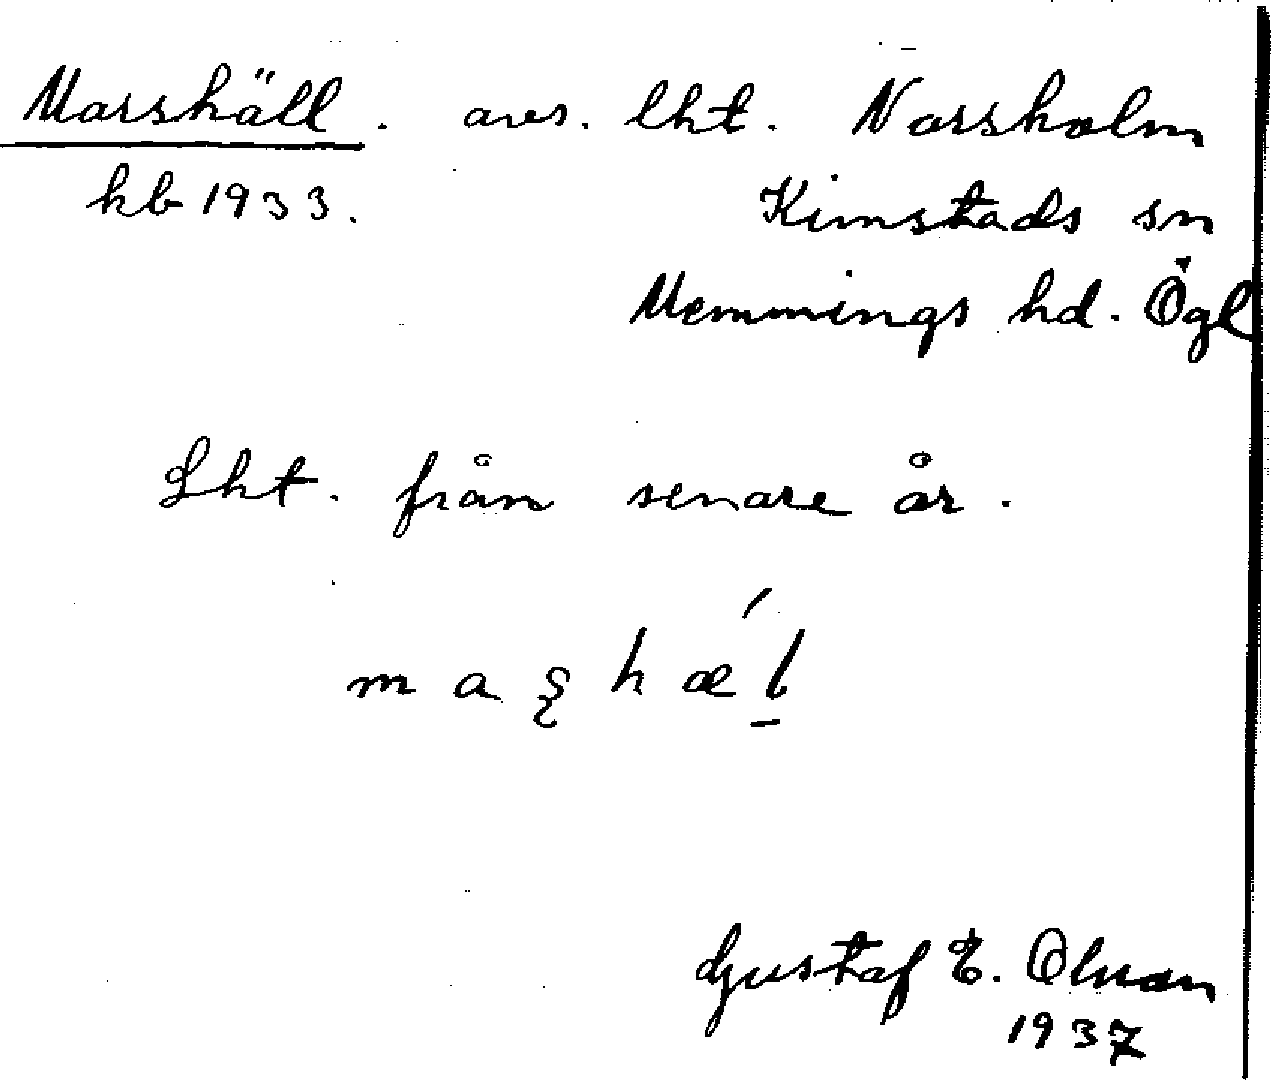 Marshäll. avs. lht. Norsholm
kb 1933. Kimstads sn
Memmings hd. Ögl
Lht. från senare år.
Gustaf E. Olson
1937